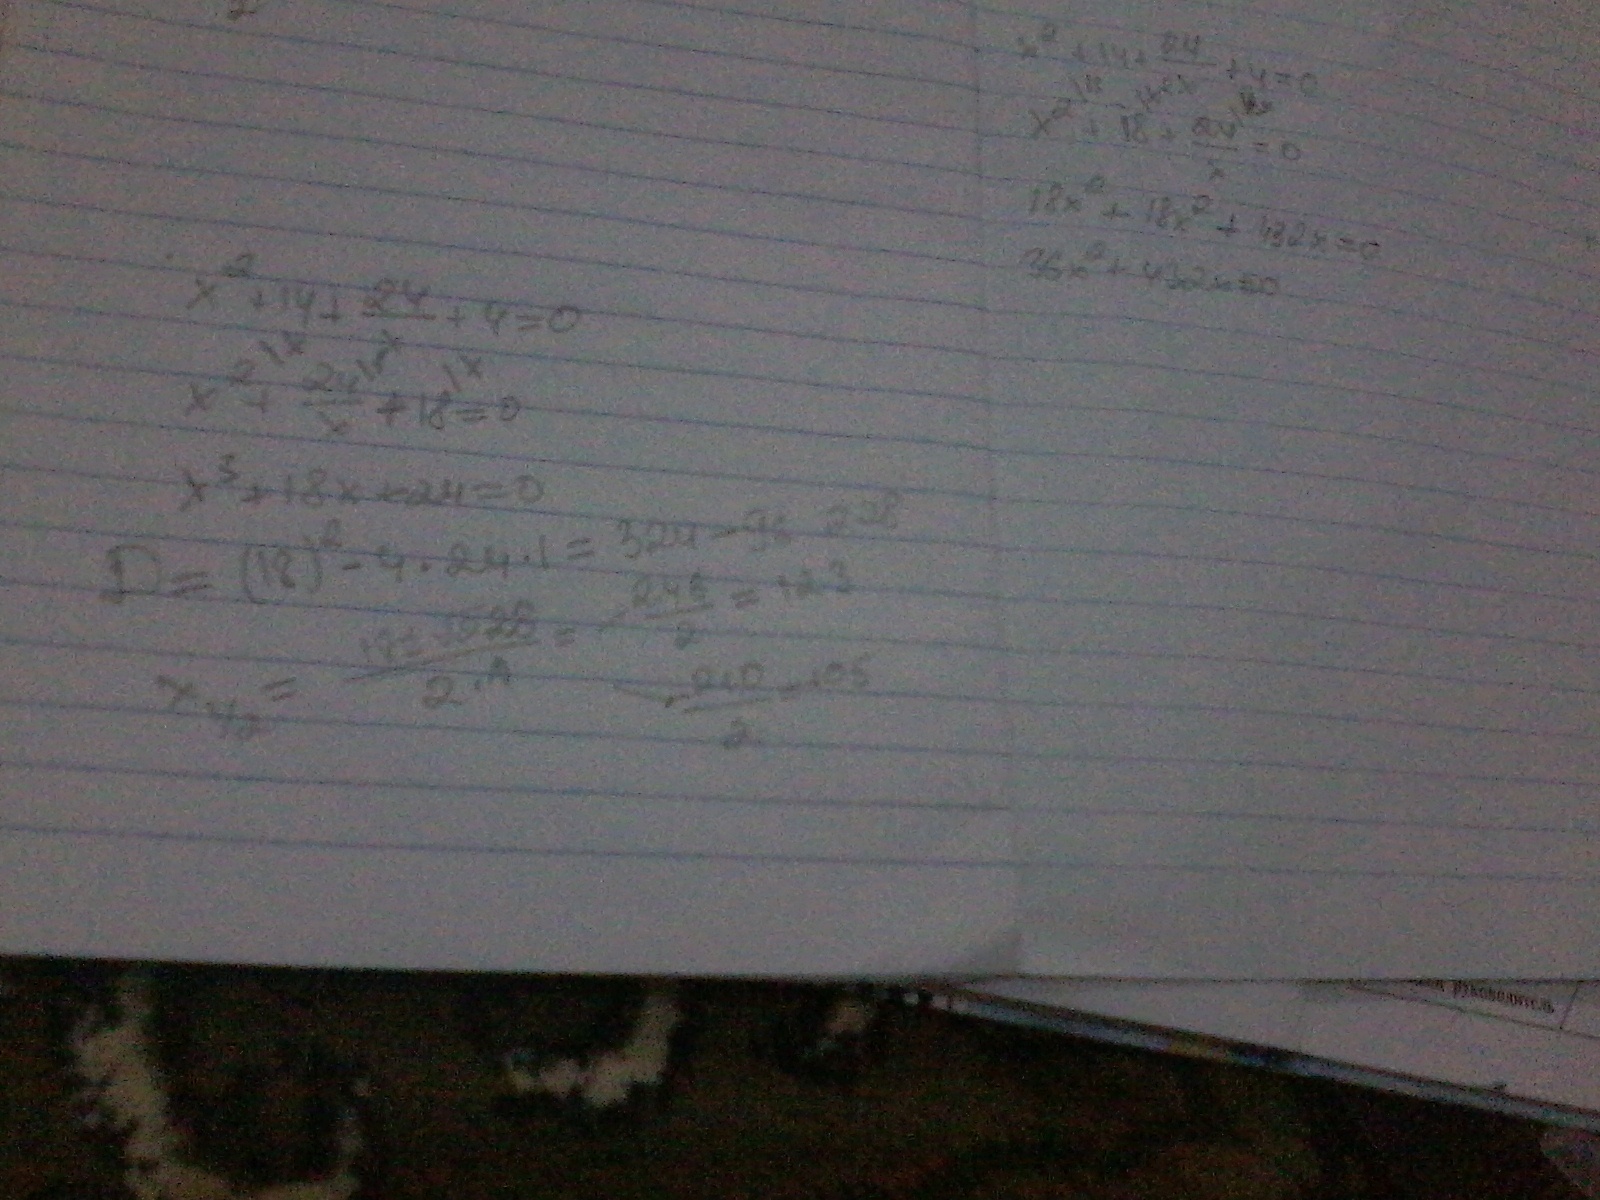 2
x² + 14 + 24 + 4 = 0
x² |x + 24/x + 18 |x = 0
x³ + 18x + 24 = 0
D = (18)² - 4 · 24 · 1 = 324 - 96 228
x₁/₂ =
2 · 1
2
210
105
2
x² + 14 + 24/x + 4 = 0
x² + 18 + 24/x = 0
18x² + 18x² + 432x = 0
36x² + 432x = 0
руководитель